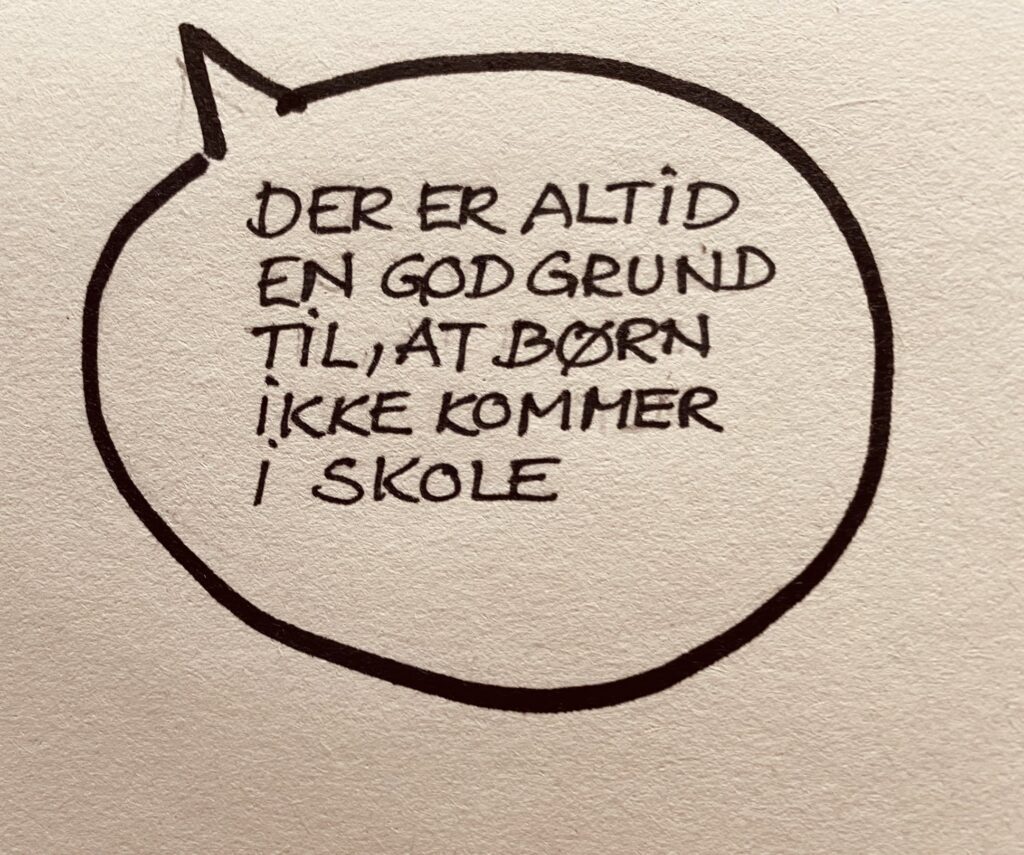 DER ER ALTID
EN GOD GRUND
TIL, AT BØRN
IKKE KOMMER
I SKOLE